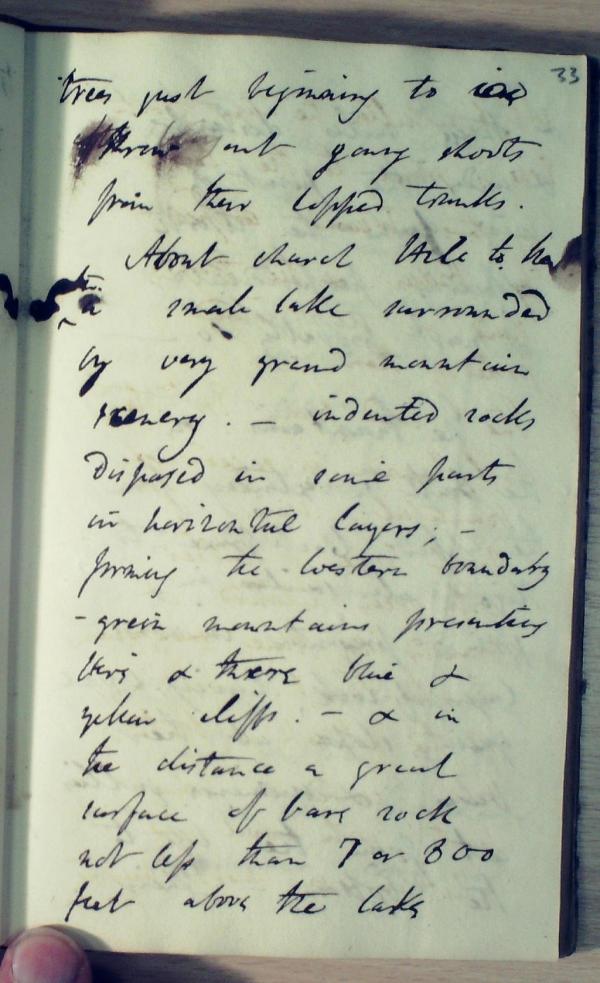 33
trees just beginning to
throw out young shoots
from their lopped trunks.
About church Hill to
to. a small lake surrounded
by very grand mountain
scenery. — indented rocks
disposed in some parts
in horizontal layers; —
forming the western boundary
- green mountains presenting
here & there blue &
yellow cliffs. — & in
the distance a great
surface of bare rock
not less than 7 or 800
feet above the lake